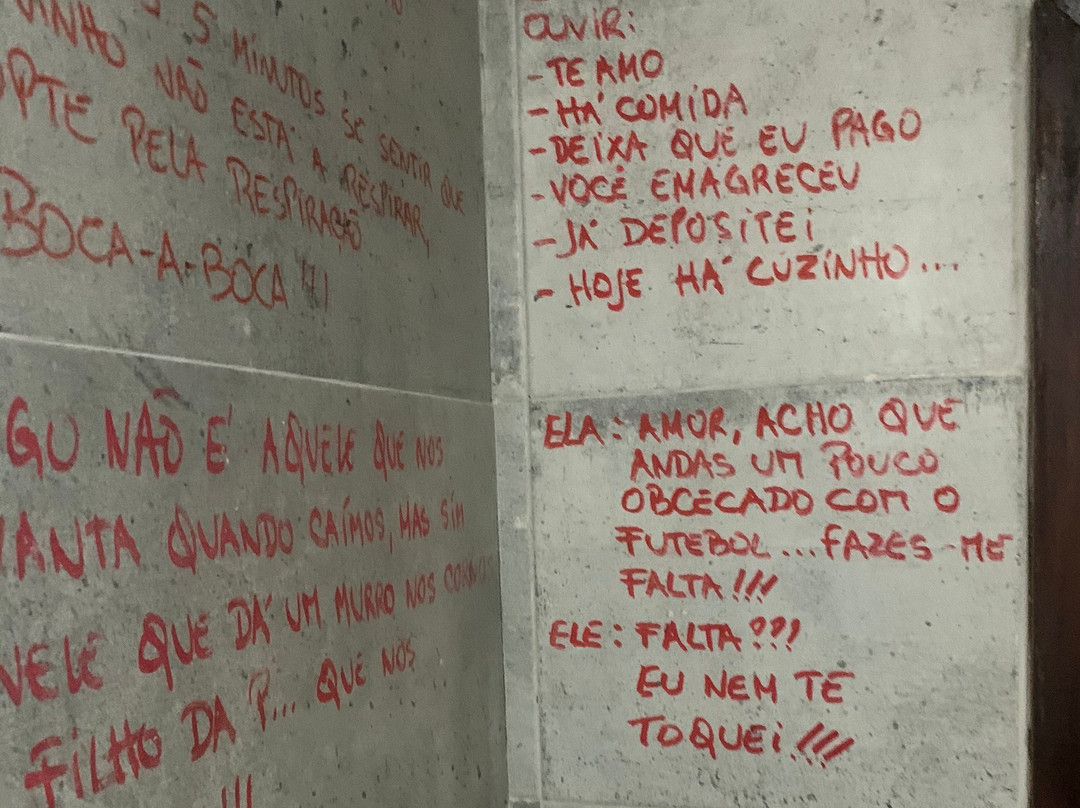 5 MINUTOS SE SENTIR QUE
NÃO ESTÁ A RESPIRAR,
PELA RESPIRAÇÃO
BOCA-A-BOCA !!!
NÃO É AQUELE QUE NOS
QUANDO CAÍMOS, MAS SIM
QUE DÁ UM MURRO NOS
FILHO DA P.... QUE NOS
!!!
OUVIR:
- TE AMO
- HÁ COMIDA
- DEIXA QUE EU PAGO
- VOCÊ EMAGRECEU
- JÁ DEPOSITEI
- HOJE HÁ CUZINHO...
ELA: AMOR, ACHO QUE
ANDAS UM POUCO
OBCECADO COM O
FUTEBOL... FAZES-ME
FALTA!!!
ELE: FALTA???
EU NEM TE
TOQUEI!!!